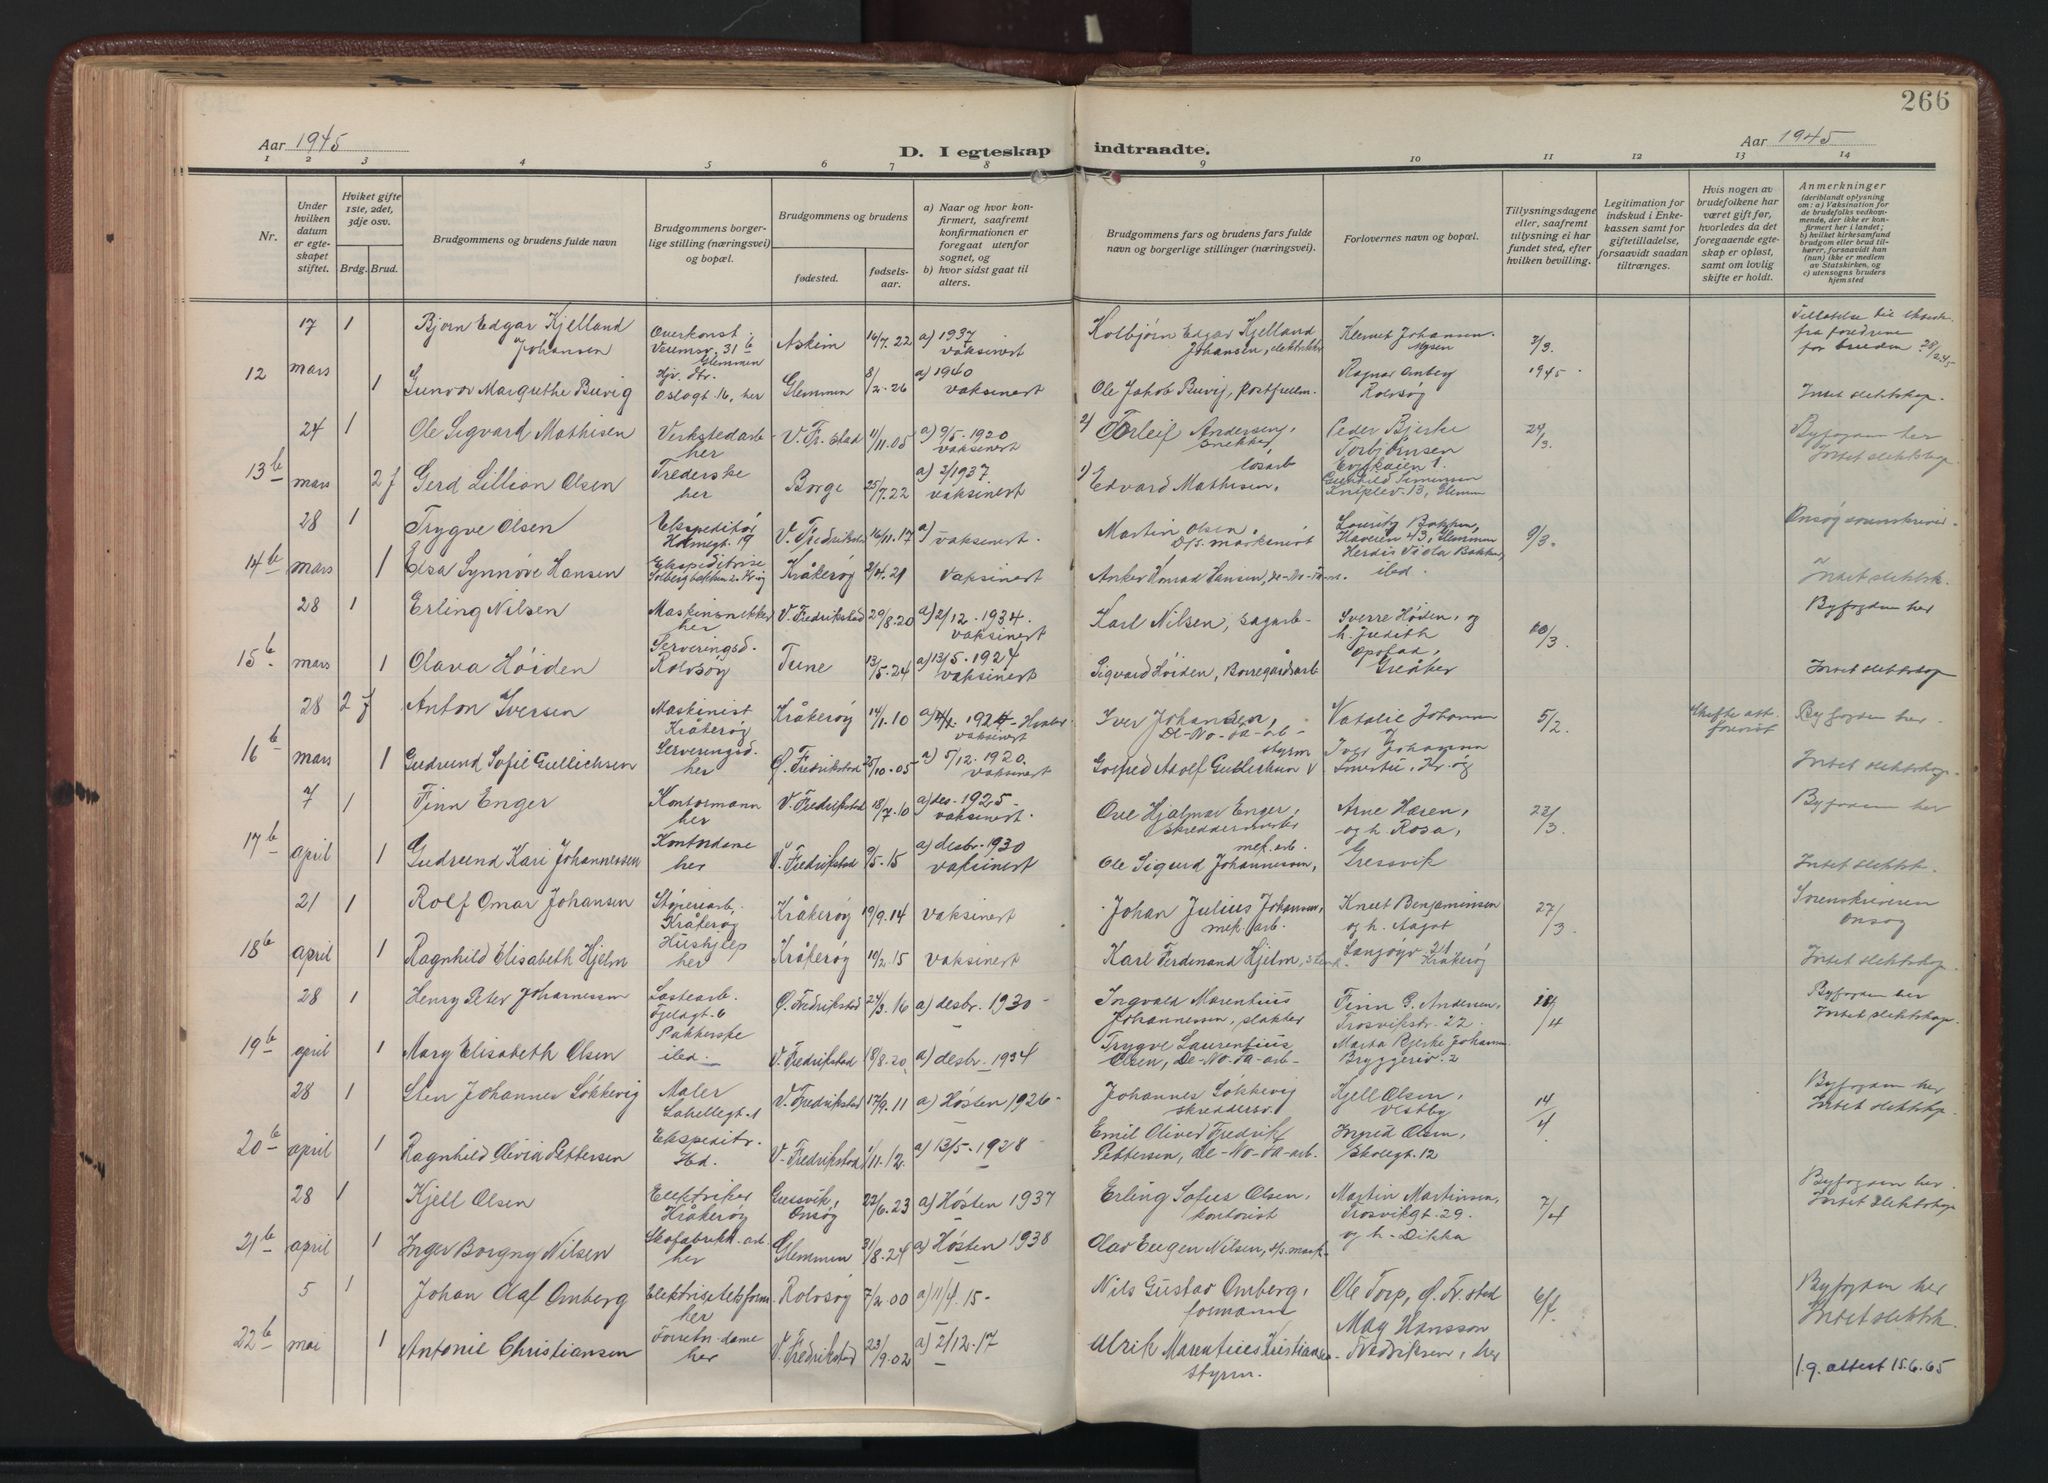 266
Aar 1945
D. I egteskap indtraadte.
Aar 1945
1 2 3 4 5 6 7 8 9 10 11 12 13 14
Nr.
Under hvilken datum er egteskapet stiftet.
Hviket gifte 1ste, 2det, 3dje osv.
Brdg. Brud.
Brudgommens og brudens fulde navn
Brudgommens borgerlige stilling (næringsvei) og bopæl.
Brudgommens og brudens
fødested.
fødselsaar.
a) Naar og hvor konfirmert, saafremt konfirmationen er foregaat utenfor sognet, og
b) hvor sidst gaat til alters.
Brudgommens fars og brudens fars fulde navn og borgerlige stillinger (næringsvei).
Forlovernes navn og bopæl.
Tillysningsdagene eller, saafremt tillysning ei har fundet sted, efter hvilken bevilling.
Legitimation for indskud i Enkekassen samt for giftetilladelse, forsaavidt saadan tiltrænges.
Hvis nogen av brudefolkene har været gift før, hvorledes da det foregaaende egteskap er opløst, samt om lovlig skifte er holdt.
Anmerkninger (deriblandt oplysning om: a) Vaksination for de brudefolks vedkommende, der ikke er konfirmert her i landet; b) hvilket kirkesamfund brudgom eller brud tilhører, forsaavidt han (hun) ikke er medlem av Statskirken, og c) utensogns bruders hjemsted
17 1 Bjørn Edgar Kjelland Johansen Askim 16/7. 22 a) 1937 vaksinert Kolbjørn Edgar Kjelland Johansen, elektriker Klemet Johansen Mysen 2/3. Tillatelse til ekteskap fra foreldrene for bruden 28/2.45
12 mars 1 Gunvor Margrethe Buvig Oslogt 16, her Glemmen 8/2. 26 a) 1940 vaksinert Ole Jakob Buvig, postfullm. Ragnar Omberg Rolvsøy 1945 Intet slektskap.
24 1 Ole Sigvard Mathisen Verkstedarb her V. Fr.stad 11/11.05 a) 9/5. 1920 vaksinert 2) Torleif Andersen, snekker Peder Bjerke Torbjørnsen 24/3. Byfogden her Intet slektskap
13 b mars 2 f Gerd Lillian Olsen her Borge 25/7.22 a) 3/1937. vaksinert 1) Edvard Mathisen, løsarb 13, Glemm
28 1 Trygve Olsen Ekspeditør 19 V. Fredrikstad 16/11. 17 a) vaksinert. Martin Olsen D/S. maskinist Lauritz Bakken, 43, Glemmen 9/3.
14 b mars 1 Elsa Synnøve Hansen Ekspeditrise Kråkerøy 2/4. 21 vaksinert Anker Konrad Hansen, De-No-Fa-m. Herdis Viola Bakken, ibid. Intet slektsk.
28 1 Erling Nilsen Maskinsnekker her V. Fredrikstad 29/8.20 a) 2/12. 1934. vaksinert Karl Nilsen, sagarb- Sverre Høiden, og h. Judith 10/3. Byfogden her
15 b mars 1 Olava Høiden Serveringsd. Rolvsøy Tune 13/5.24 a) 13/5. 1924 vaksinert Sigvard Høiden, Borregårdsarb Opstad, Greåker Intet slektskap
28 2 f Anton Iversen Maskinist Kråkerøy Kråkerøy 14/1. 10 1924 - Hvaler vaksinert Iver Johansen, De-No-Fa-arb- Natalie Johansen og 5/2. Skifte att. Byfogden her.
16 b mars 1 Gudrund Sofie Gullichsen Serveringsd. her Ø. Fredrikstad 25/10.05 a) 5/12. 1920. vaksinert Gotfred Adolf Gullichsen styrm Iver Johansen Kr.øy Intet slektskap.
7 1 Finn Enger Kontormann her V. Fredrikstad 18/7.10 a) des. 1925 - vaksinert. Ove Hjalmar Enger, skreddermester Arne Hæren, og h. Rosa, 23/3. Byfogden her
17 b april 1 Gudrund Kari Johannessen Kontordame her V. Fredrikstad 9/5. 15 a) desbr. 1930 vaksinert Ole Sigurd Johannessen, mek. arb. Gressvik Intet slektsk.
21 1 Rolf Omar Johansen Støperiarb, Kråkerøy Kråkerøy 19/9. 14 vaksinert Johan Julius Johansen, mek. arb. Knut Benjaminsen og h. Aagot 27/3 Sorenskriveren Onsøy
18 b april 1 Ragnhild Elisabeth Hjelm Hushjelp her Kråkerøy 10/2. 15 vaksinert Karl Ferdinand Hjelm, 21 Kråkerøy Intet slektskap.
28 1 Henry Peter Johannessen Lastearb. 6 Ø. Fredrikstad 24/3. 16 a) desbr. 1930 - Ingvald Marentius Johannessen, slakter Finn G. Andersen, Trosvikstr. 22. 14/4 Byfogden her Intet slektskap
19 b april 1 Mary Elisabeth Olsen Pakkerske ibid. V. Fredrikstad 18/8.20. a) desbr. 1934 Trygve Laurentius Olsen, De-No-Fa-arb- Marta Bjerke Johannsen Bryggeriv. 2
28 1 Sten Johannes Løkkevig Maler V. Fredrikstad 17/9. 11 a) Høsten 1926- Johannes Løkkevig skreddersv. Kjell Olsen, Vestby 14/4 Byfogden her Intet slektskap
20 b april 1 Ragnhild Olivia Pettersen Ekspeditr. Ibd. V. Fredrikstad 1/11.12. a) 13/5. 1928 Emil Oliver Fredrik Pettersen, De-No-Fa-arb. Ingrid Olsen, Skolegt. 12
28 1 Kjell Olsen Elektriker Kråkerøy Gressvik, Onsøy 22/6. 23 a) Høsten 1937 Erling Sofus Olsen, kontorist Martin Martinsen, Trosvikgt. 29. 7/4 Byfogden her. Intet slektskap
21 b april 1 Inger Borgny Nilsen Skofabrikk-arb her Glemmen 31/8.24 a) Høsten 1938 Olav Eugen Nilsen, og h. Dikka
5 1 Johan Olaf Omberg her Rolvsøy 7/2.00 a) 11/4. 15- Nils Gustav Omberg, formann Ole Torp, Ø. Fr.stad Byfogden her Intet slektsk.
22 b mai 1 Antonie Christiansen Forretn. dame her V. Fredrikstad 23/9.02 a) 2/12. 17 Ulrik Marentius Kristiansen styrm. May Hansson Fredriksen, her
1.g. attest 15.6.65